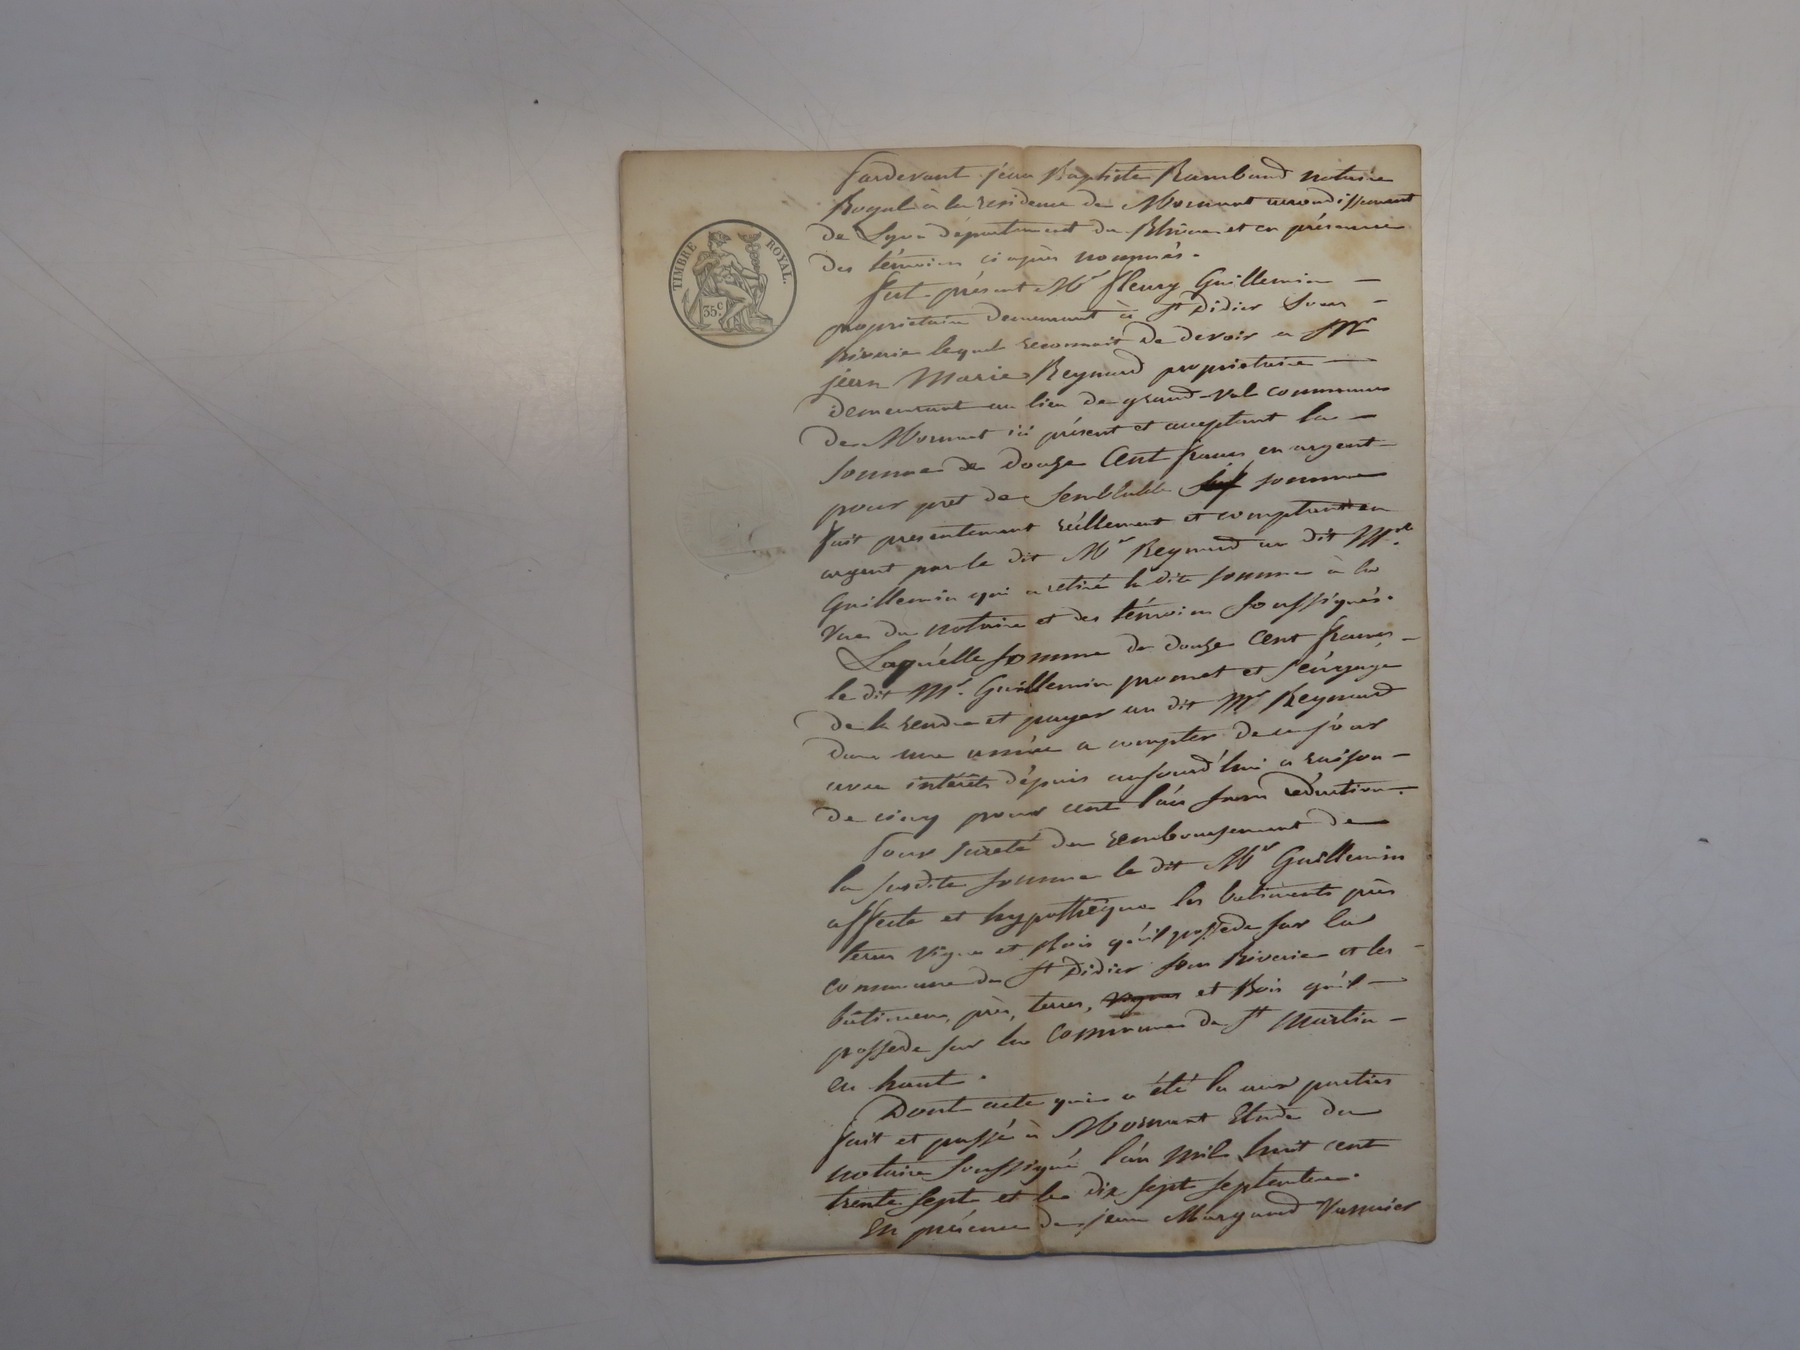 TIMBRE ROYAL.
35c
Pardevant jean Baptiste Rambaud notaire
Royal à la residence de Mornant arrondissement
de Lyon département du Rhône et en présence
des témoins ci après nommés.
fut présent Mr fleury Guillermin —
propriétaire demeurant à St Didier Sous -
Riverie lequel reconnait de devoir a Mr
jean Marie Reynard propriétaire —
demeurant au lieu de grand-val commune
de Mornant ici présent et acceptant la —
somme de douze Cent francs en argent -
pour prêt de semblable somme
fait presentement réellement et comptant en
argent par le dit Mr Reynard au dit Mr
Guillermin qui a retiré la dite somme à la
vue du notaire et des témoins soussignés.
Laquelle somme de douze Cent francs -
le dit Mr. Guillermin promet et s'éngage
de la rendre et payer au dit Mr Reynard
dans une année a compter de ce jour
avec intérêts dépuis aujourd'hui a raison -
de cinq pour cent l'án sans réduction -.
Pour sureté du remboursement de
la susdite somme le dit Mr Guillermin
affecte et hypothéque les batiments près
terres vignes et Bois qu'il possede sur la
commune de St Didier sous Riverie et les -
bâtimens, près, terres, vignes et Bois qu'il —
possede sur la Commune de St Martin -
en haut.
Dont acte qui a été lu aux parties
fait et passé à Mornant Etude du
notaire soussigné l'án mil huit cent
trente sept et le dix sept septembre.
En présence de jean Margand Vannier